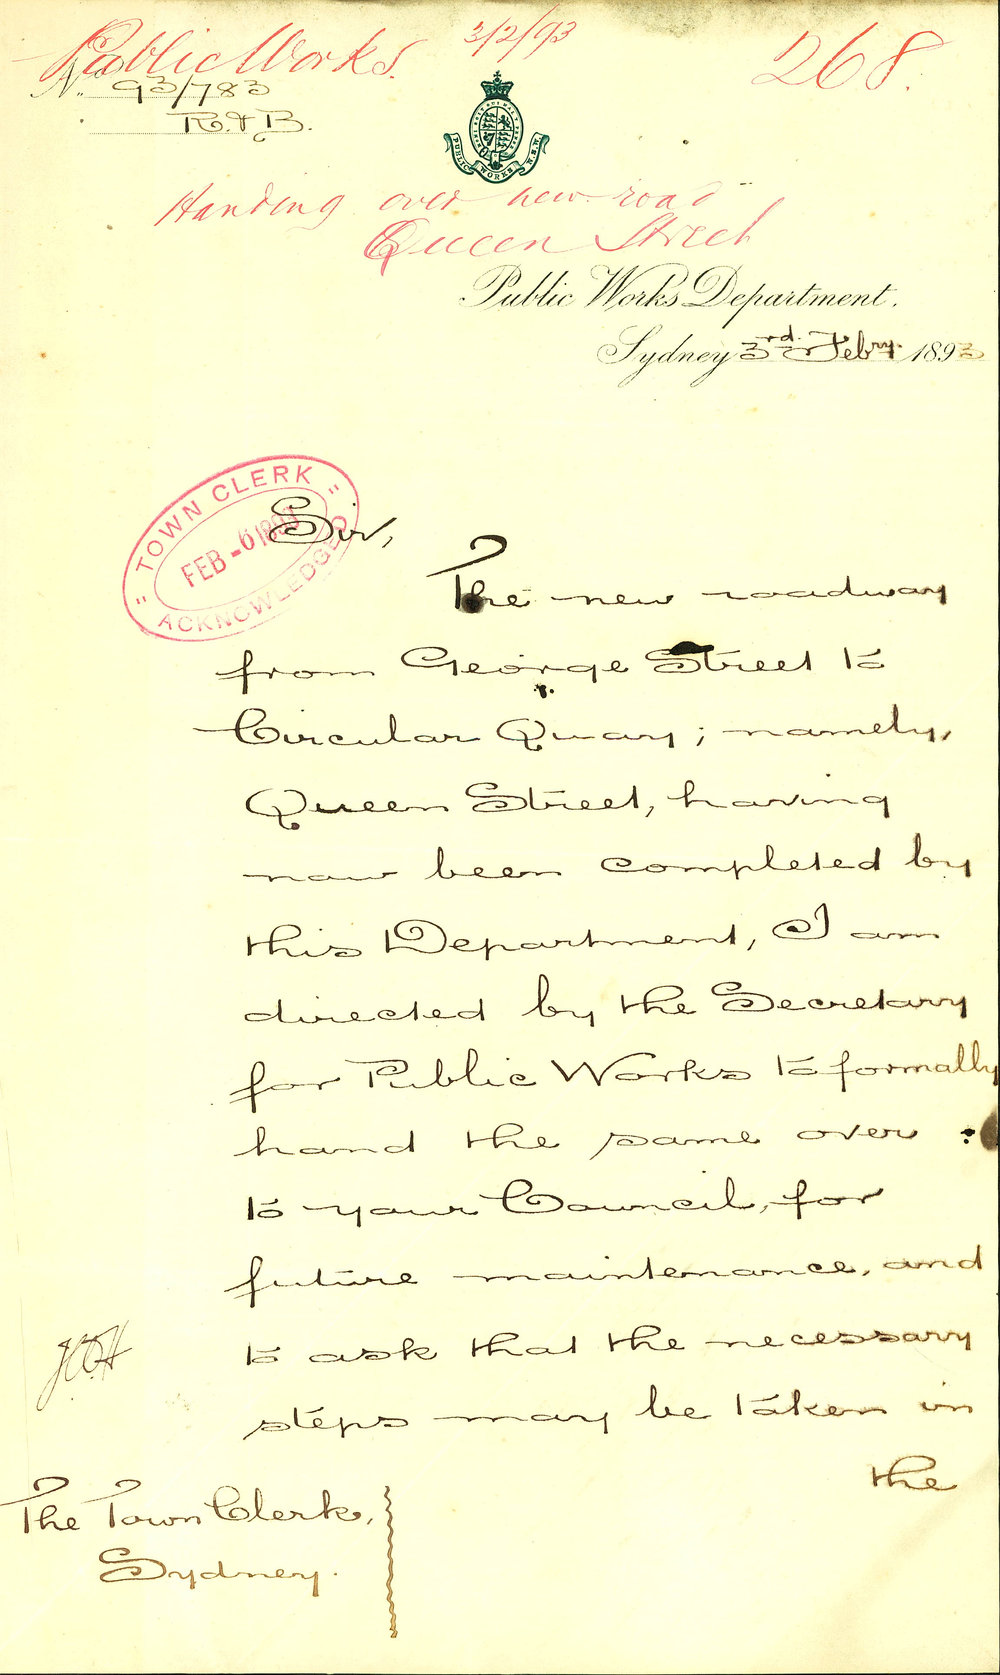 Public Works. 3/2/93 268.
No. 93/783
R. & B.
PUBLIC WORKS N.S.W.
Handing over new road
Queen Street
Public Works Department.
Sydney 3rd. Febry. 1893
TOWN CLERK
FEB -6 1893
ACKNOWLEDGED
Sir,
The new roadway
from George Street to
Circular Quay; namely,
Queen Street, having
now been completed by
this Department, I am
directed by the Secretary
for Public Works to formally
hand the same over
to your Council, for
future maintenance, and
to ask that the necessary
steps may be taken in
the
The Town Clerk,
Sydney.